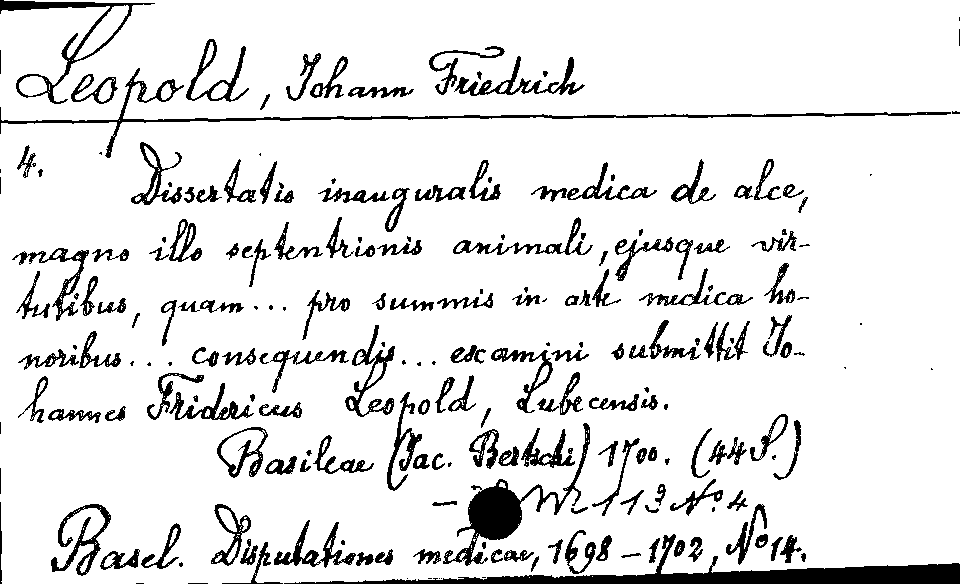 Leopold, Johann Friedrich
4.
Dissertatio inauguralis medica de alce,
magno illo septentrionis animali, ejusque vir-
tutibus, quam... pro summis in arte medica ho-
noribus... consequendis... examini submittit Jo-
hannes Fridericus Leopold, Lubecensis.
Basileae (Jac. Bertschi) 1700. (44 S.)
113 No. 4
Basel. Disputationes medicae, 1698-1702, No 14.